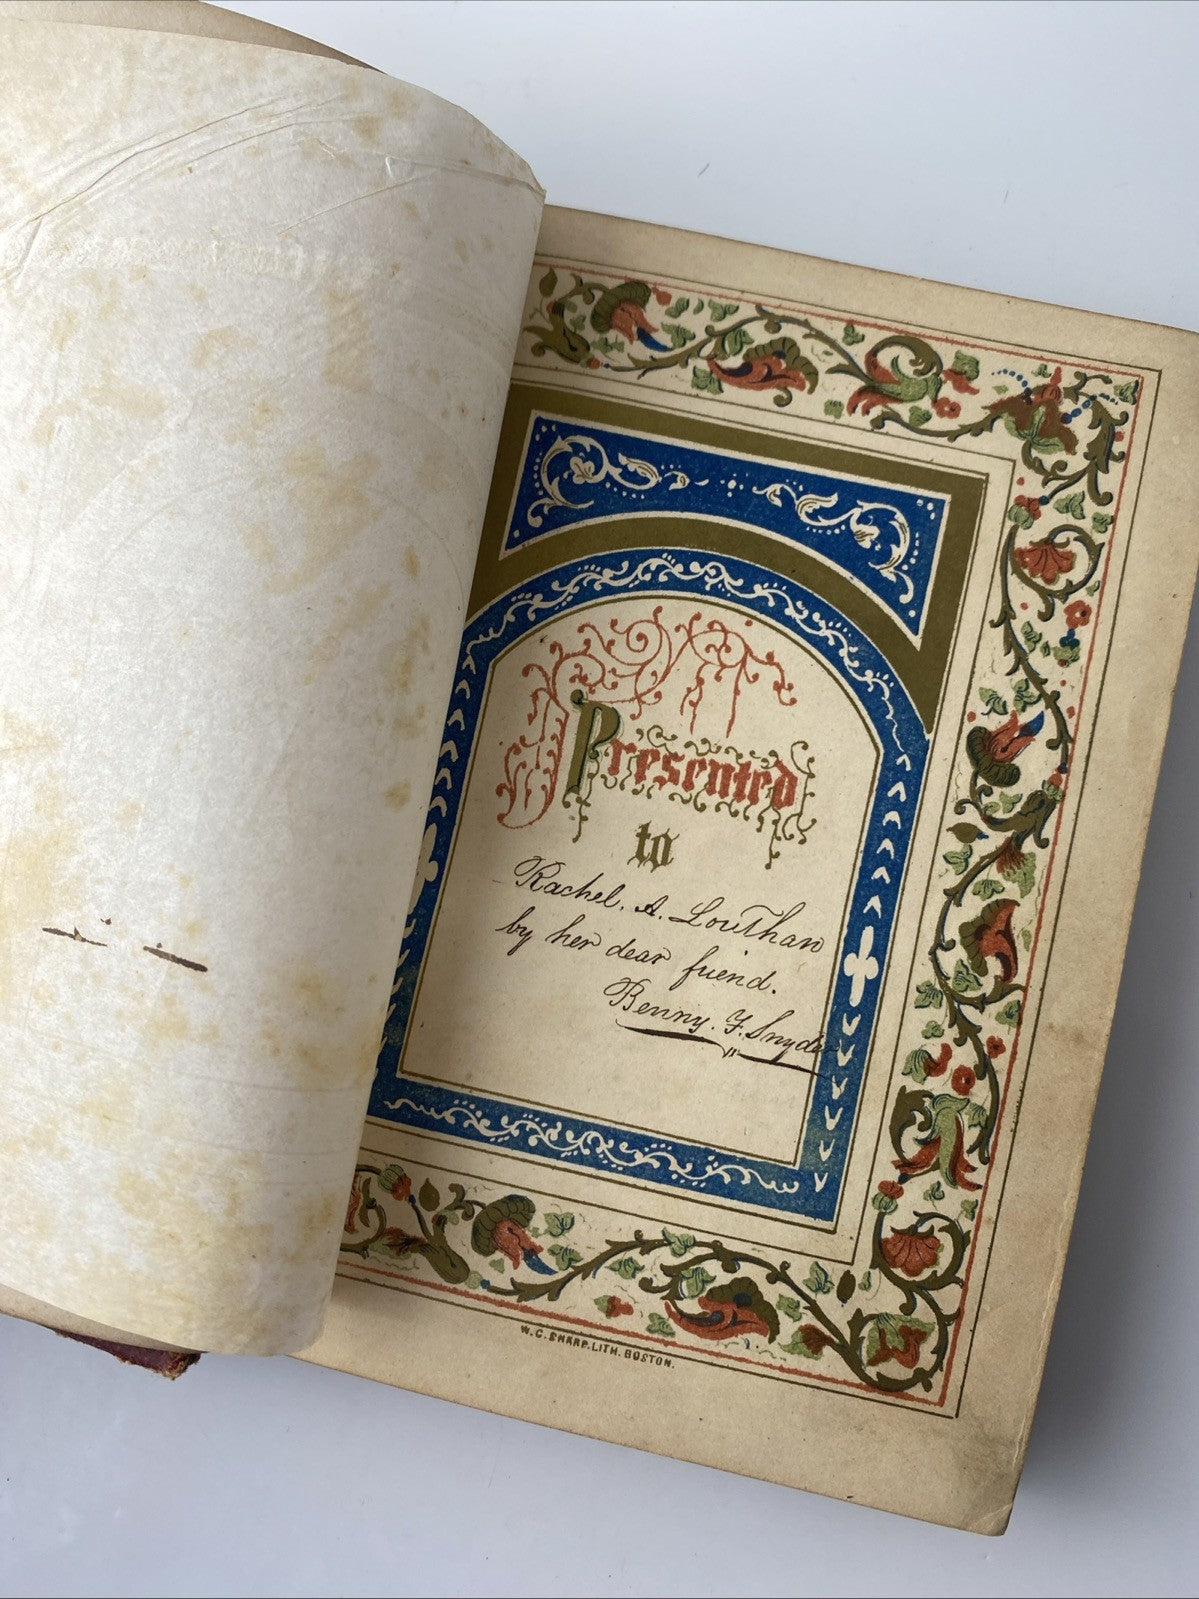 Presented
to
Rachel. A. Louthan
by her dear friend.
Benny. F. Snyder
W.C. SHARP. LITH. BOSTON.